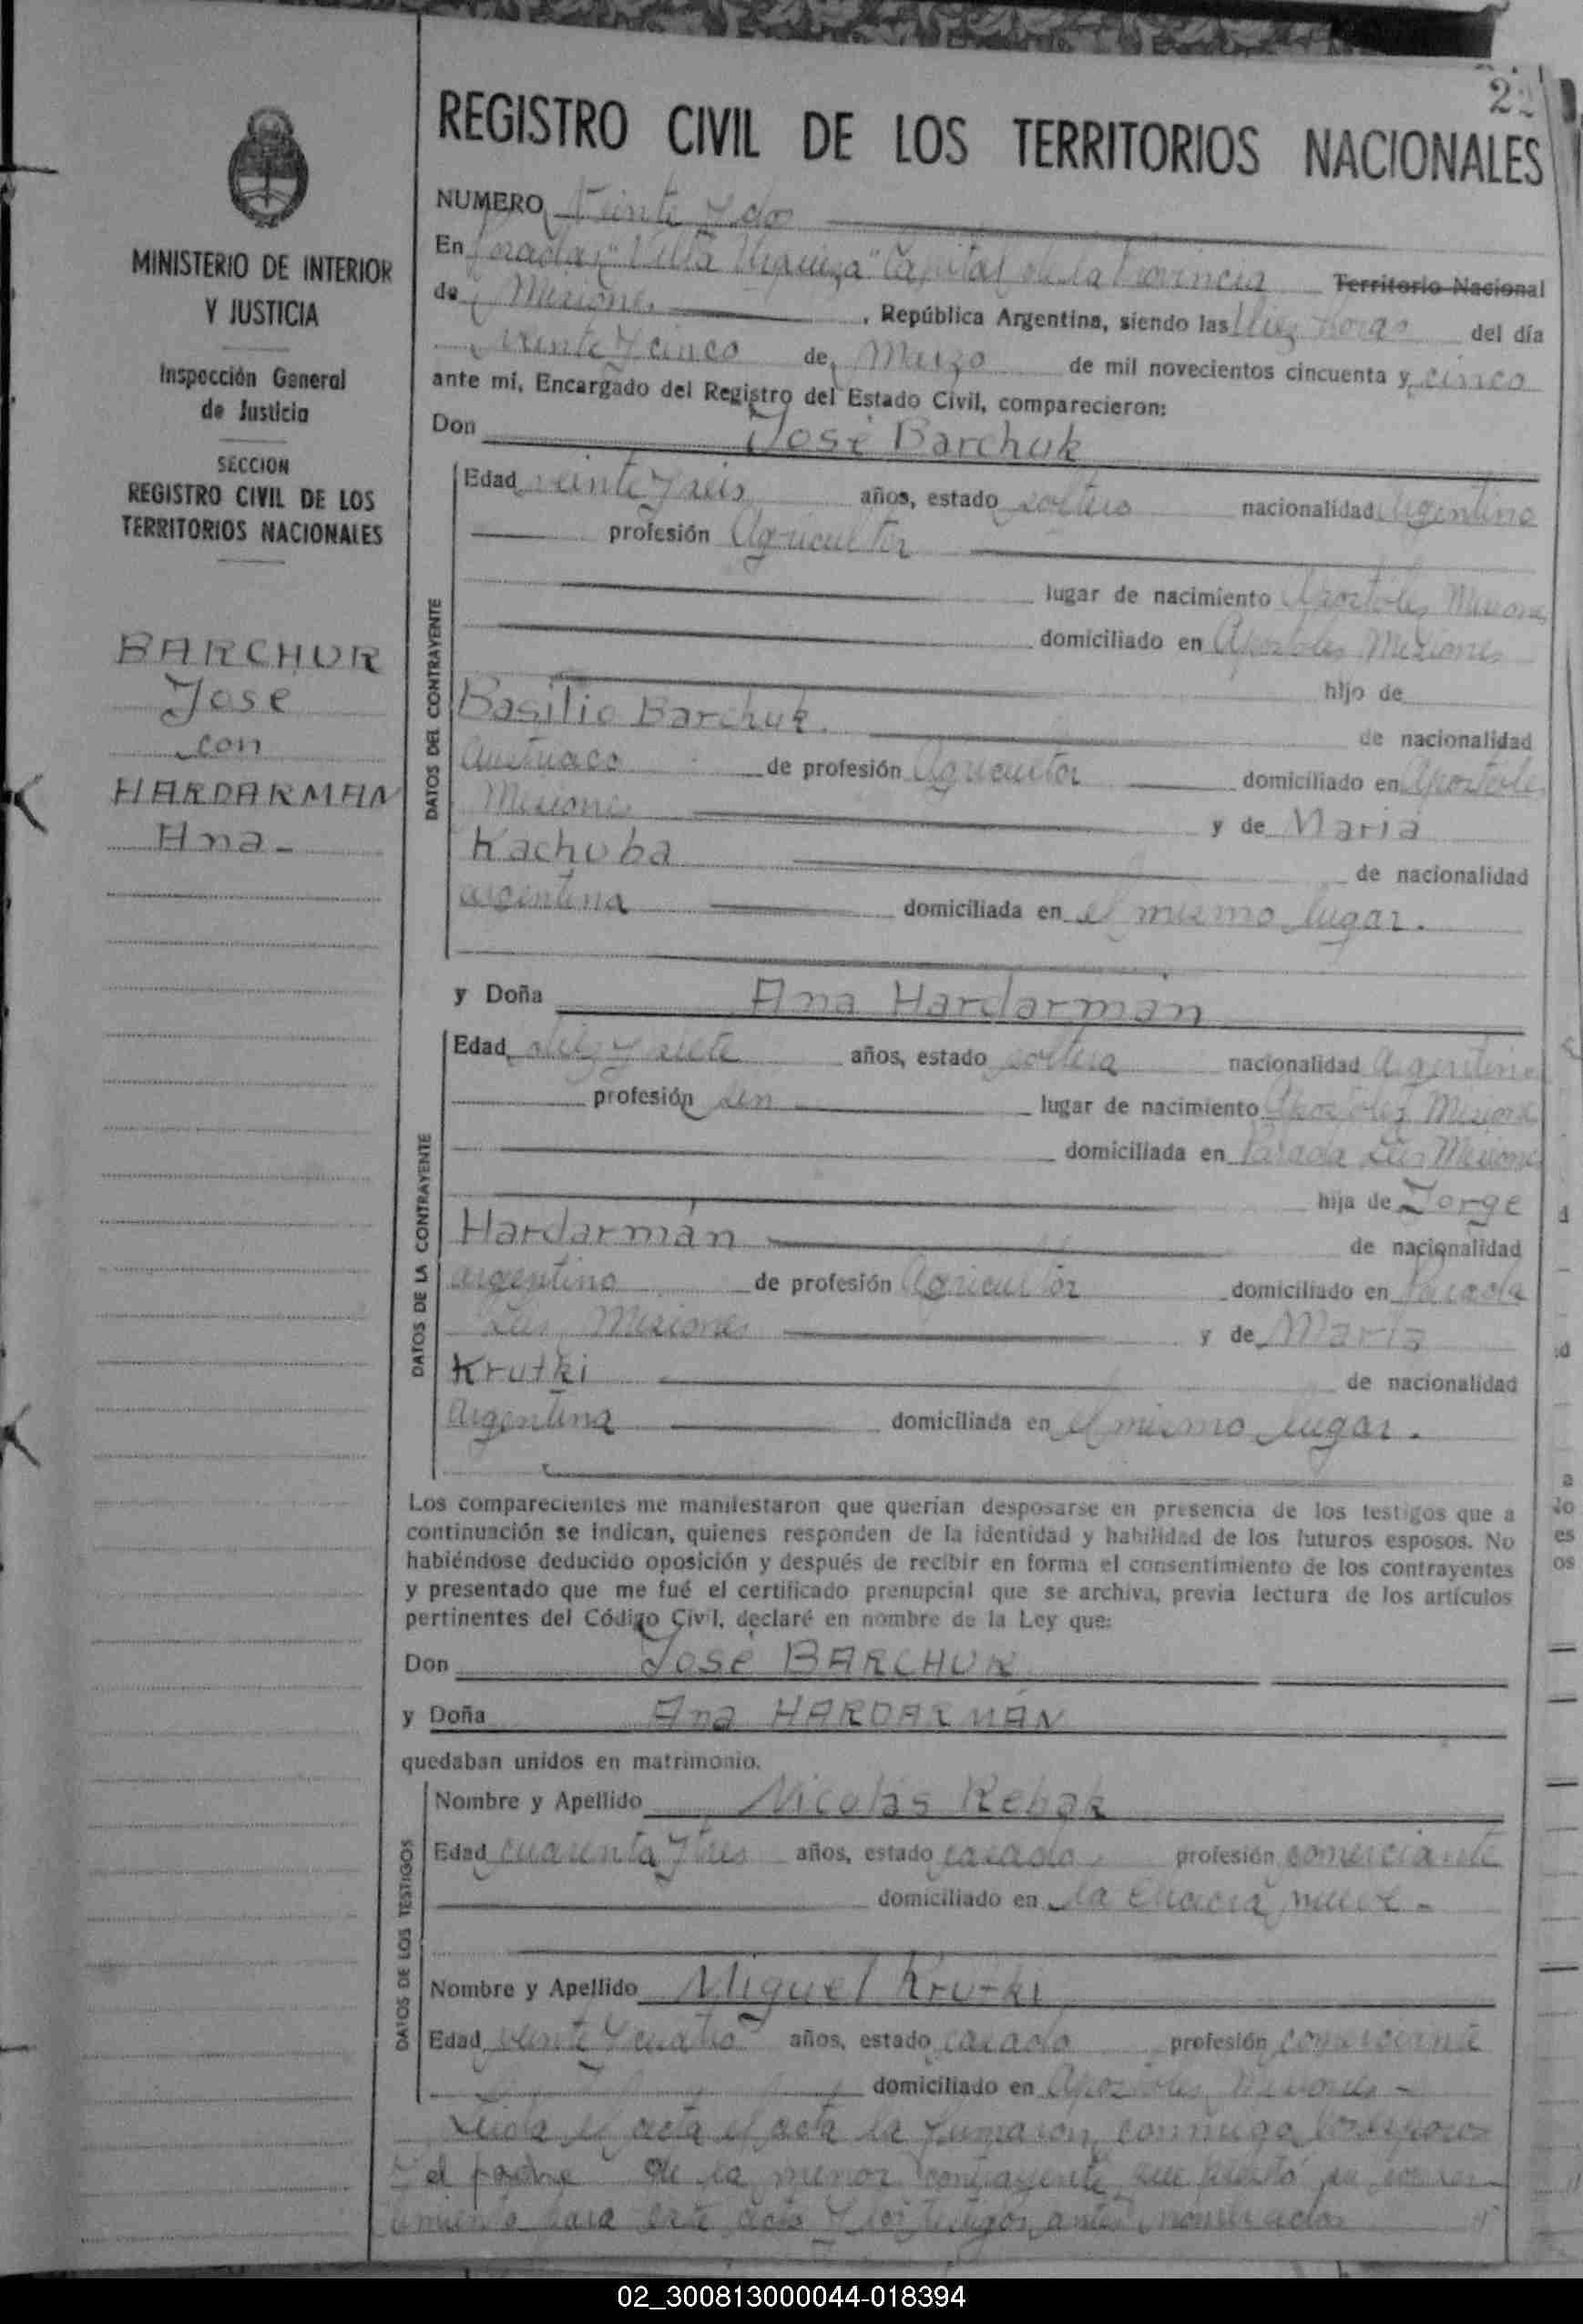 22
REGISTRO CIVIL DE LOS TERRITORIOS NACIONALES
MINISTERIO DE INTERIOR
Y JUSTICIA
Inspección General
de Justicia
SECCION
REGISTRO CIVIL DE LOS
TERRITORIOS NACIONALES
BARCHUK
José
con
HARDARMAN
Ana-
NUMERO Veinte y dos
En Posadas "Villa Urquiza" Capital de la Provincia Territorio Nacional
de Misiones, República Argentina, siendo las diez horas del día
veinte y cinco de Marzo de mil novecientos cincuenta y cinco
ante mí, Encargado del Registro del Estado Civil, comparecieron:
Don José Barchuk
DATOS DEL CONTRAYENTE
Edad veinte y seis años, estado soltero nacionalidad Argentino
profesión Agricultor
lugar de nacimiento Apóstoles Misiones
domiciliado en Apóstoles Misiones
hijo de
Basilio Barchuk. de nacionalidad
Austriaco de profesión Agricultor domiciliado en Apóstoles
Misiones y de María
Kachuba de nacionalidad
argentina domiciliada en el mismo lugar.
y Doña Ana Hardarmán
DATOS DE LA CONTRAYENTE
Edad diez y siete años, estado soltera nacionalidad Argentina
profesión sin lugar de nacimiento Apóstoles Misiones
domiciliada en Parada Leis Misiones
hija de Jorge
Hardarmán de nacionalidad
argentino de profesión Agricultor domiciliado en Parada
Leis Misiones y de María
Krutki de nacionalidad
Argentina domiciliada en el mismo lugar.
Los comparecientes me manifestaron que querían desposarse en presencia de los testigos que a
continuación se indican, quienes responden de la identidad y habilidad de los futuros esposos. No
habiéndose deducido oposición y después de recibir en forma el consentimiento de los contrayentes
y presentado que me fué el certificado prenupcial que se archiva, previa lectura de los artículos
pertinentes del Código Civil, declaré en nombre de la Ley que:
Don José BARCHUK
y Doña Ana HARDARMÁN
quedaban unidos en matrimonio.
DATOS DE LOS TESTIGOS
Nombre y Apellido Nicolás Rebak
Edad cuarenta y tres años, estado casado profesión comerciante
domiciliado en la chacra nueve-
Nombre y Apellido Miguel Krutki
Edad veinte y cuatro años, estado casado profesión comerciante
domiciliado en Apóstoles Misiones-
Leida el acta el acta la firmaron conmigo los esposos
y el padre de la menor contrayente que prestó su consen
timiento para este acto y los testigos antes nombrados
02_300813000044-018394